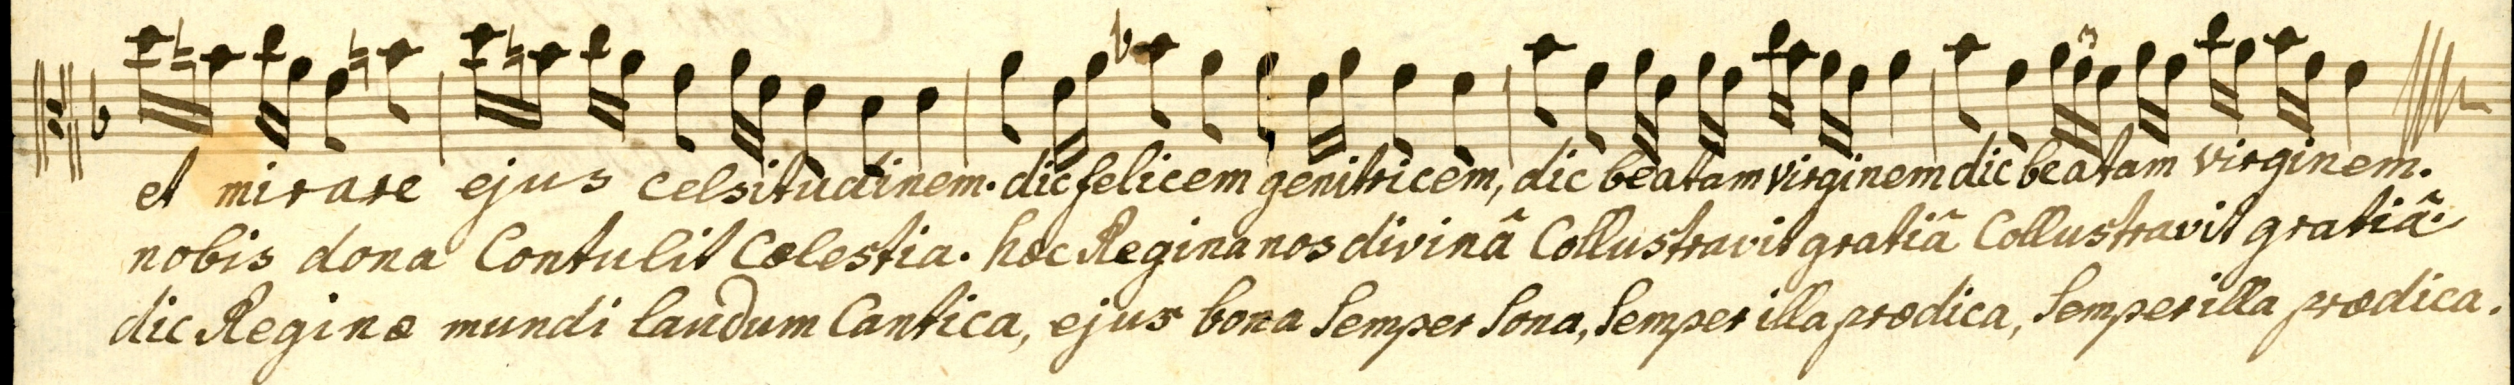 et mirare ejus celsitudinem. dic felicem genitricem, dic beatam virginem dic beatam virginem.
nobis dona Contulit Cœlestia. hæc Regina nos divinâ Collustravit gratiâ Collustravit gratiâ.
dic Reginæ mundi laudum Cantica, ejus bona Semper Sona, Semper illa prædica, Semper illa prædica.